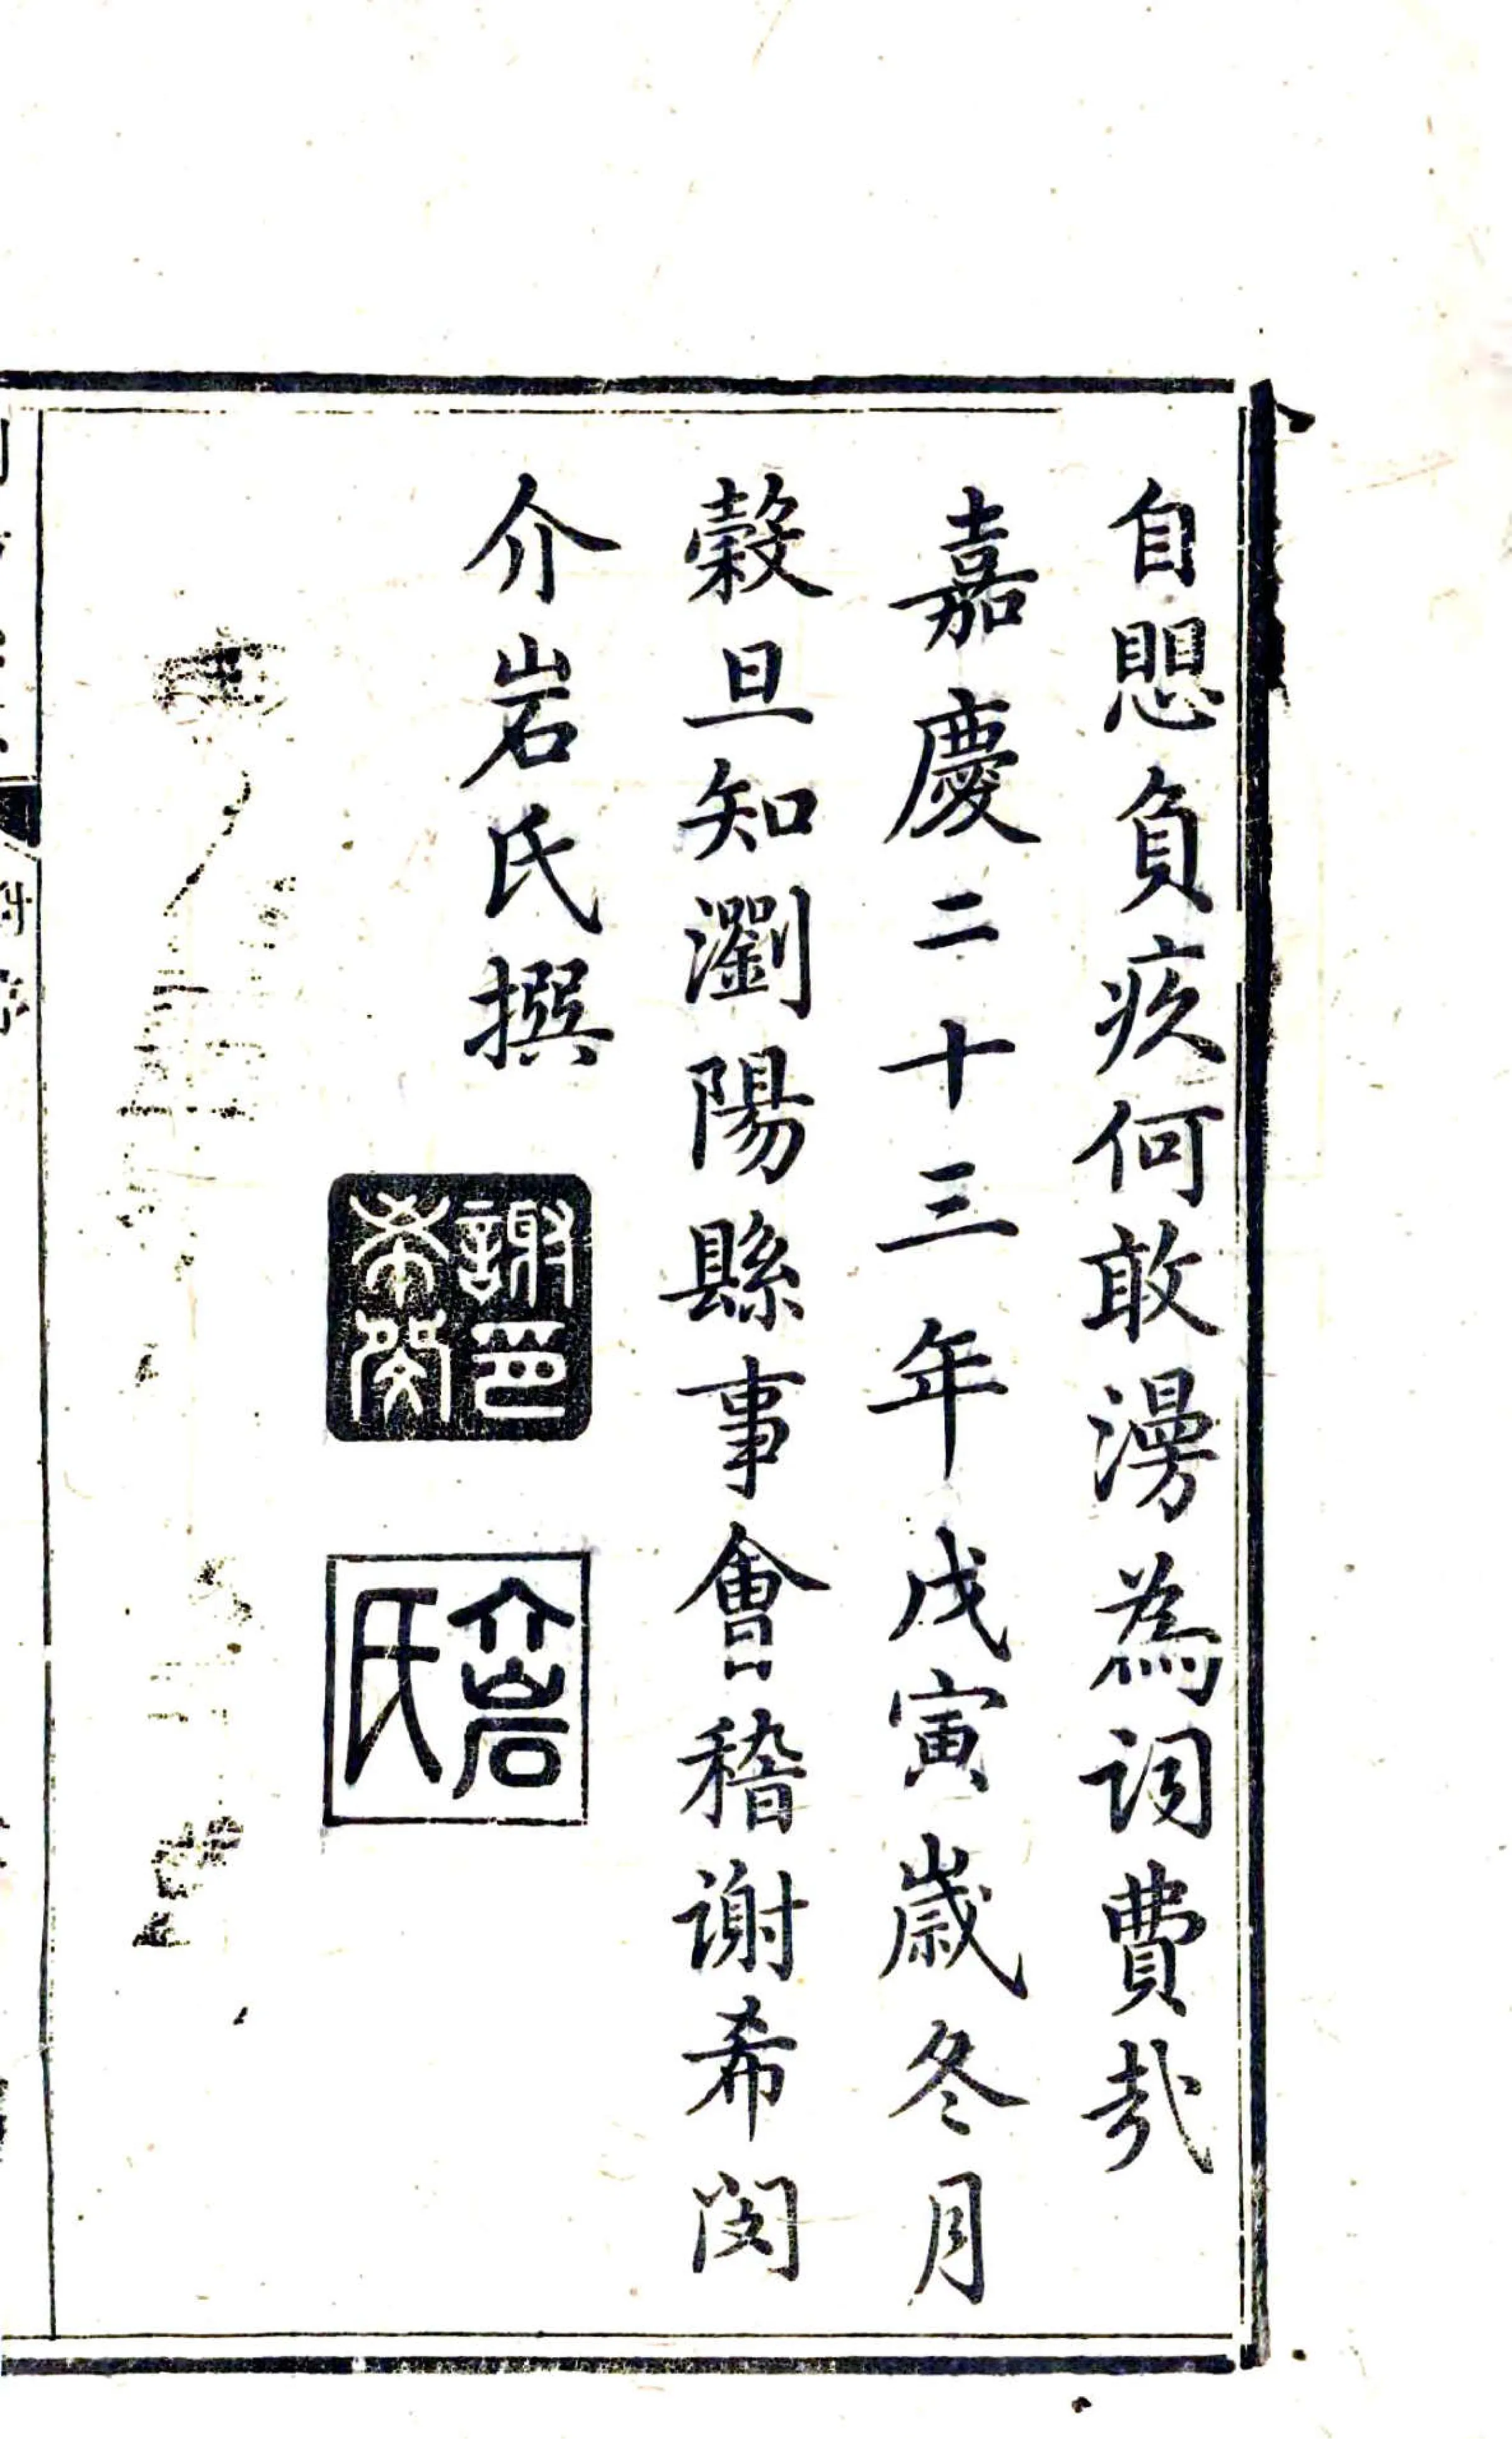 自愳負疚何敢漫為詞費哉
嘉慶二十三年戊寅歲冬月
穀旦知瀏陽縣事會稽谢希閔
介岩氏撰
謝印希閔
介岩氏